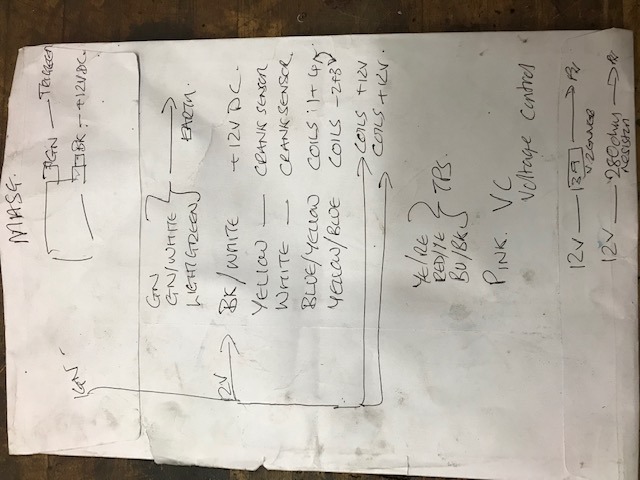 MASG.
GN — TRIGGER
BK. — +12V DC.
IGN
GN
GN/WHITE
LIGHTGREEN
EARTH
12V
BK/WHITE +12V DC.
YELLOW — CRANK SENSOR
WHITE — CRANKSENSOR.
BLUE/YELLOW COILS 1+4
YELLOW/BLUE COILS - 2+3
COILS +12V
COILS +12V.
YE/RE
RED/YE
BU/BK
TPS.
PINK. VC
Voltage Control
12V — 3A
12V — 280 ohm
Resistor